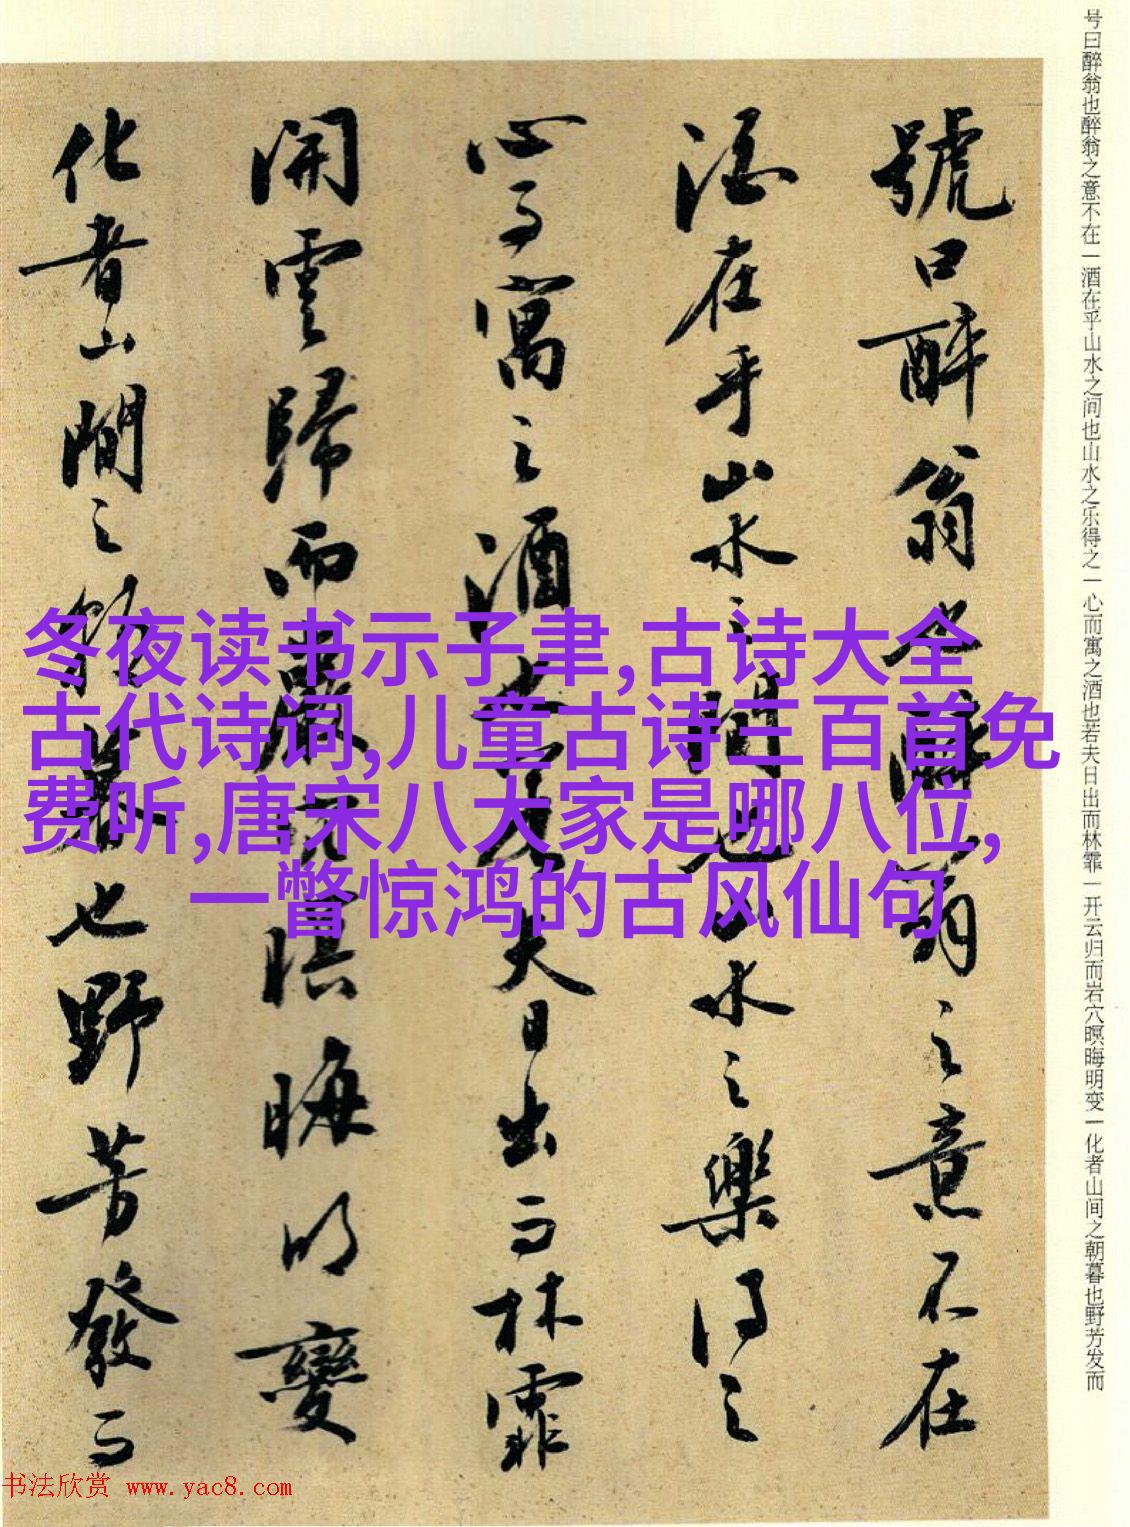 号曰醉翁也醉翁之意不在一酒在乎山水之间也山水之乐得之一心而寓之酒也若夫日出而林霏一开云归而岩穴暝晦明变一化者山间之朝暮也野芳发而
號曰醉翁也醉翁之意不在
酒在乎山水之間也山水之樂得之
心而寓之酒也若夫日出而林霏
開雲歸而巖穴暝晦明變
化者山間之朝暮也野芳發而
冬夜读书示子聿,古诗大全
古代诗词,儿童古诗三百首免
费听,唐宋八大家是哪八位,
一瞥惊鸿的古风仙句
书法欣赏 www.yac8.com